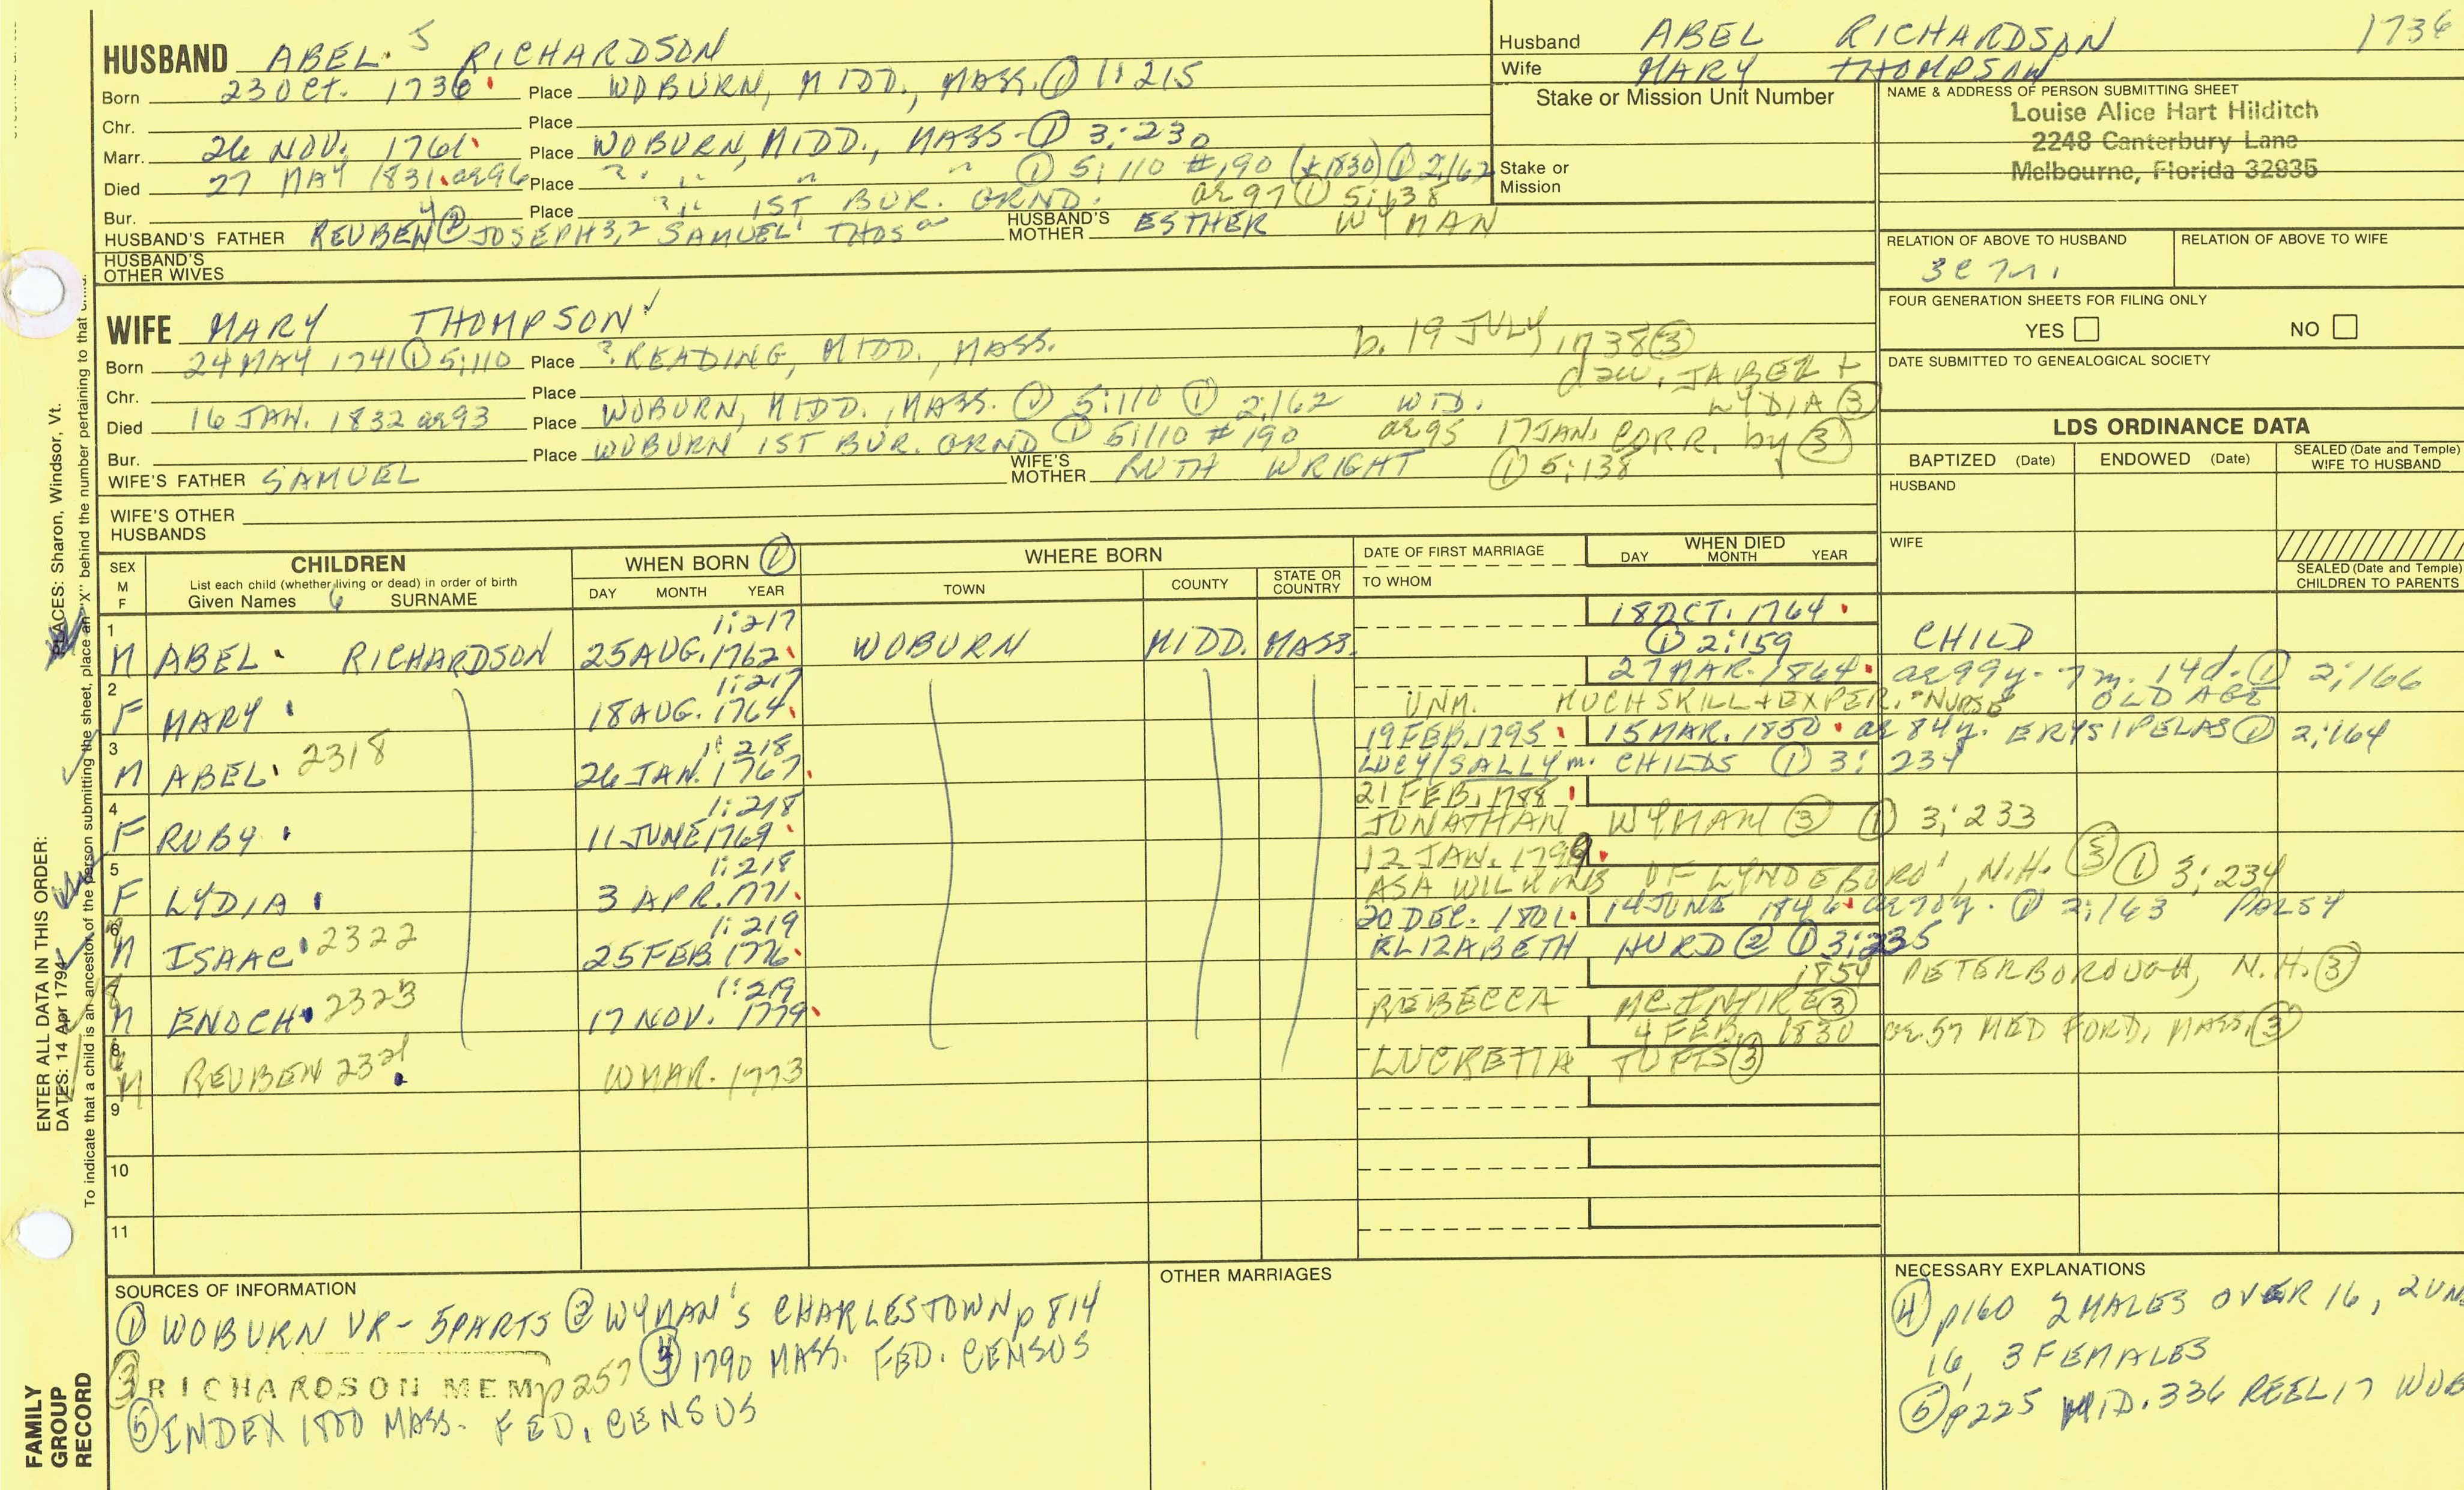 HUSBAND ABEL 5 RICHARDSON
Born 23 OCT. 1736 Place WOBURN, MIDD., MASS. ① 1:215
Chr. Place
Marr. 26 NOV. 1761 Place WOBURN, MIDD., MASS - ① 3:230
Died 27 MAY 1831 ae 96 Place ? " " " ① 5:110 #190 (£1830) ① 2:162
Bur. Place ? " 1ST BUR. GRND. ae 97 ① 5:138
HUSBAND'S FATHER REUBEN 4 ② JOSEPH 3,2 SAMUEL 1 THOS a HUSBAND'S MOTHER ESTHER WYMAN
HUSBAND'S OTHER WIVES
Husband ABEL RICHARDSON 1736
Wife MARY THOMPSON
Stake or Mission Unit Number
Stake or Mission
NAME & ADDRESS OF PERSON SUBMITTING SHEET
Louise Alice Hart Hilditch
2248 Canterbury Lane
Melbourne, Florida 32935
RELATION OF ABOVE TO HUSBAND RELATION OF ABOVE TO WIFE
FOUR GENERATION SHEETS FOR FILING ONLY
YES NO
DATE SUBMITTED TO GENEALOGICAL SOCIETY
WIFE MARY THOMPSON
Born 24 MAY 1741 ① 5:110 Place ? READING, MIDD., MASS. b. 19 JULY, 1738 ③
dau. JABEZ + LYDIA ③
Chr. Place
Died 16 JAN. 1832 ae 93 Place WOBURN, MIDD., MASS. ① 5:110 ① 2:162 WID.
Bur. Place WOBURN 1ST BUR. GRND ① 5:110 #190 ae 95 17 JAN. CORR. by ③
WIFE'S FATHER SAMUEL WIFE'S MOTHER RUTH WRIGHT ① 5:138
WIFE'S OTHER HUSBANDS
LDS ORDINANCE DATA
BAPTIZED (Date) ENDOWED (Date) SEALED (Date and Temple) WIFE TO HUSBAND
HUSBAND
WIFE
SEALED (Date and Temple) CHILDREN TO PARENTS
SEX M F CHILDREN List each child (whether living or dead) in order of birth Given Names 6 SURNAME
WHEN BORN ① DAY MONTH YEAR
WHERE BORN TOWN COUNTY STATE OR COUNTRY
DATE OF FIRST MARRIAGE TO WHOM
WHEN DIED DAY MONTH YEAR
1 1:217 18 OCT. 1764
M ABEL RICHARDSON 25 AUG. 1762 WOBURN MIDD. MASS. ① 2:159 CHILD
2 1:217 27 MAR. 1864 ae 99y. 7m. 14d. ① 2:166
F MARY 18 AUG. 1764 UNM. MUCH SKILL + EXPER. "NURSE OLD AGE
3 1:218 19 FEB. 1795 15 MAR. 1850 ae 84y. ERYSIPELAS ① 2:164
M ABEL 2318 26 JAN. 1767 LUCY/SALLY m. CHILDS ① 3:234
4 1:218 21 FEB. 1788
F RUBY 11 JUNE 1769 JONATHAN WYMAN ③ ① 3:233
5 1:218 12 JAN. 1799
F LYDIA 3 APR. 1771 ASA WILKINS OF LYNDEBORO', N.H. ③ ① 3:234
6 1:219 20 DEC. 1801 14 JUNE 1846 ae 70y. ① 2:163 PALSY
M ISAAC 2322 25 FEB. 1776 ELIZABETH HURD ② ① 3:235
7 1:219 1854 PETERBOROUGH, N.H. ③
M ENOCH 2323 17 NOV. 1779 REBECCA MCINTIRE ③
8 4 FEB. 1830 ae 57 MEDFORD, MASS. ③
M REUBEN 2321 MAR. 1773 LUCRETIA TUFTS ③
9
10
11
SOURCES OF INFORMATION
① WOBURN VR - 5 PARTS ② WYMAN'S CHARLESTOWN p 814
③ RICHARDSON MEM p 257 ④ 1790 MASS. FED. CENSUS
⑤ INDEX 1800 MASS. FED. CENSUS
OTHER MARRIAGES
NECESSARY EXPLANATIONS
④ p160 2 MALES OVER 16, 2 UN
16, 3 FEMALES
⑤ p225 MID. 336 REEL 17 WOB
ENTER ALL DATA IN THIS ORDER:
DATES: 14 Apr 1794 PLACES: Sharon, Windsor, Vt.
To indicate that a child is an ancestor of the person submitting the sheet, place an "X" behind the number pertaining to that child.
FAMILY
GROUP
RECORD